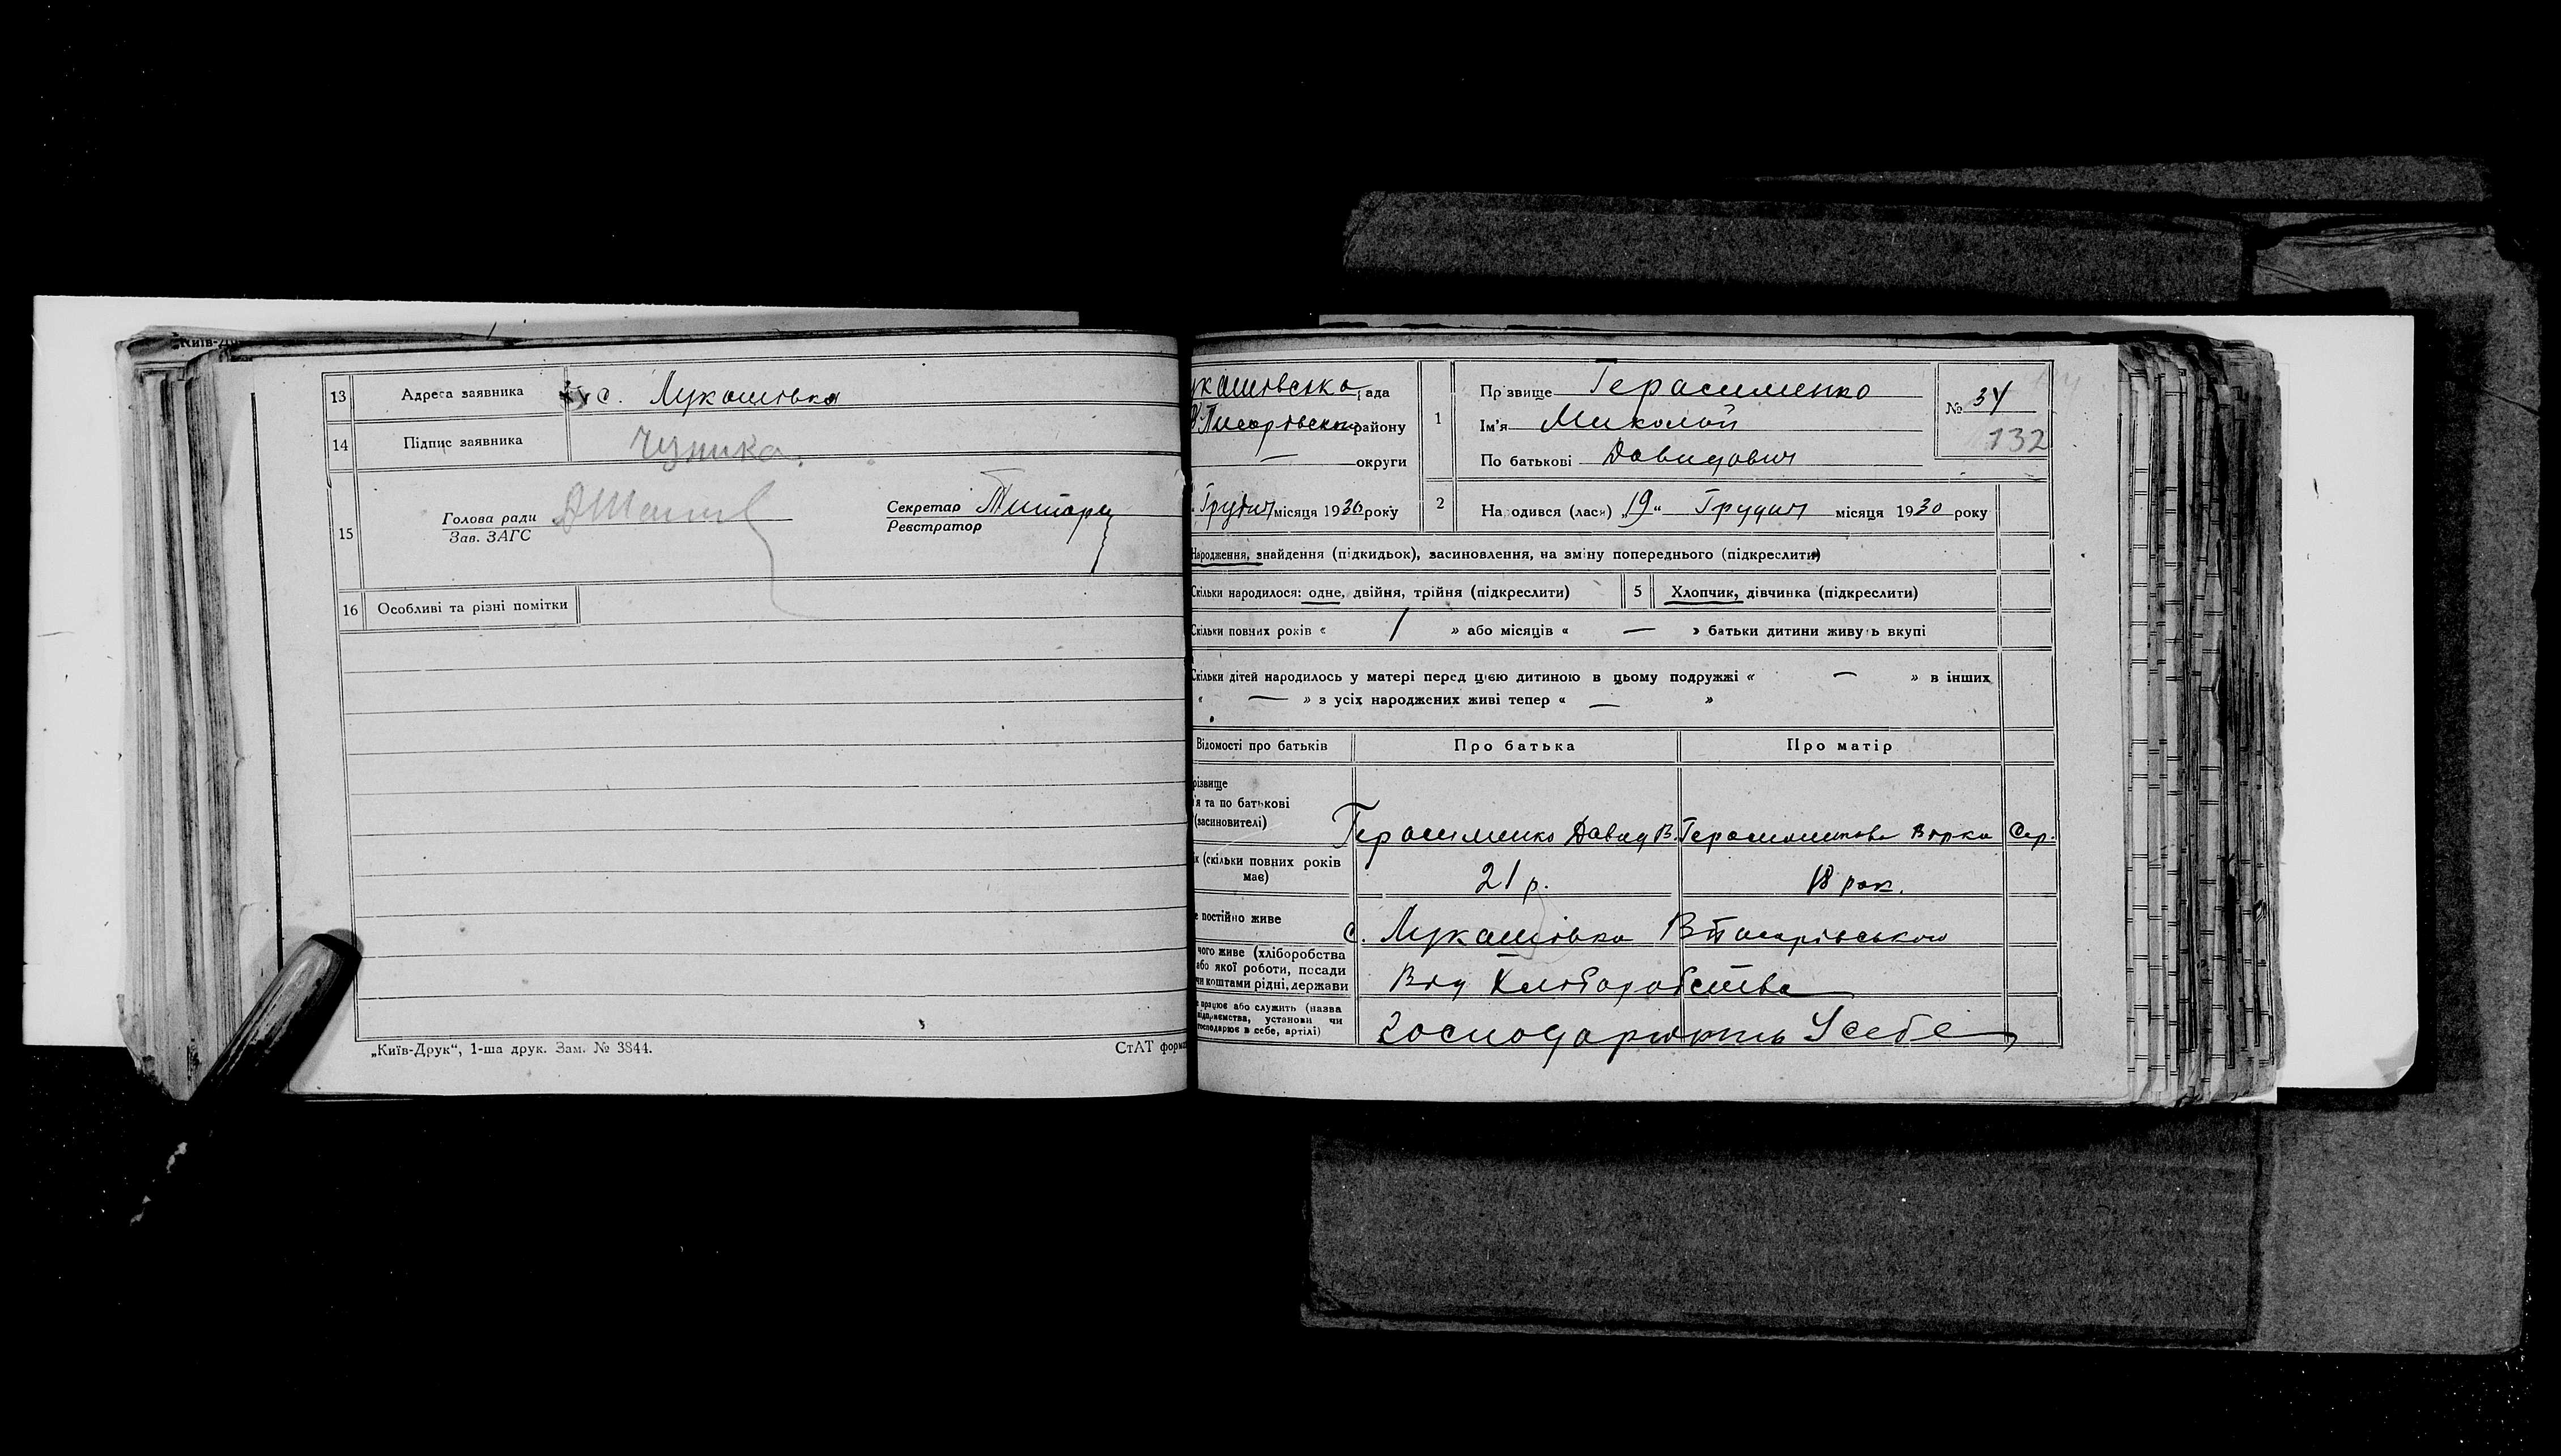 Київ-Др
13 Адреса заявника с. Лукашовка
14 Підпис заявника
15 Голова ради Секретар
Зав. ЗАГС Реєстратор
16 Особливі та різні помітки
„Київ-Друк“, 1-ша друк. Зам. № 3844. СтАТ форма
укашовська рада
району
— округи
Грудня місяця 1930 року
1 Прізвище Герасименко
Ім'я Миколай
По батькові Давидович
№ 34
132
2 Народився (лася) „19“ Грудня місяця 1930 року
Народження, знайдення (підкидьок), засиновлення, на зміну попереднього (підкреслити)
Скільки народилося: одне, двійня, трійня (підкреслити) 5 Хлопчик, дівчинка (підкреслити)
Скільки повних років « 1 » або місяців « — » батьки дитини живуть вкупі
Скільки дітей народилось у матері перед цією дитиною в цьому подружжі « — » в інших
« — » з усіх народжених живі тепер « — »
Відомості про батьків Про батька Про матір
різвище
'я та по батькові
(засиновителі) Герасименко Давид В. Вірка
к (скільки повних років має) 21 р. 18 рок.
е постійно живе с. Лукашовка
чого живе (хліборобства
або якої роботи, посади
чи коштами рідні, держави Від Хліборобства
е працює або служить (назва
підприємства, установи чи
господарює в себе, артілі) Господарюють У себе